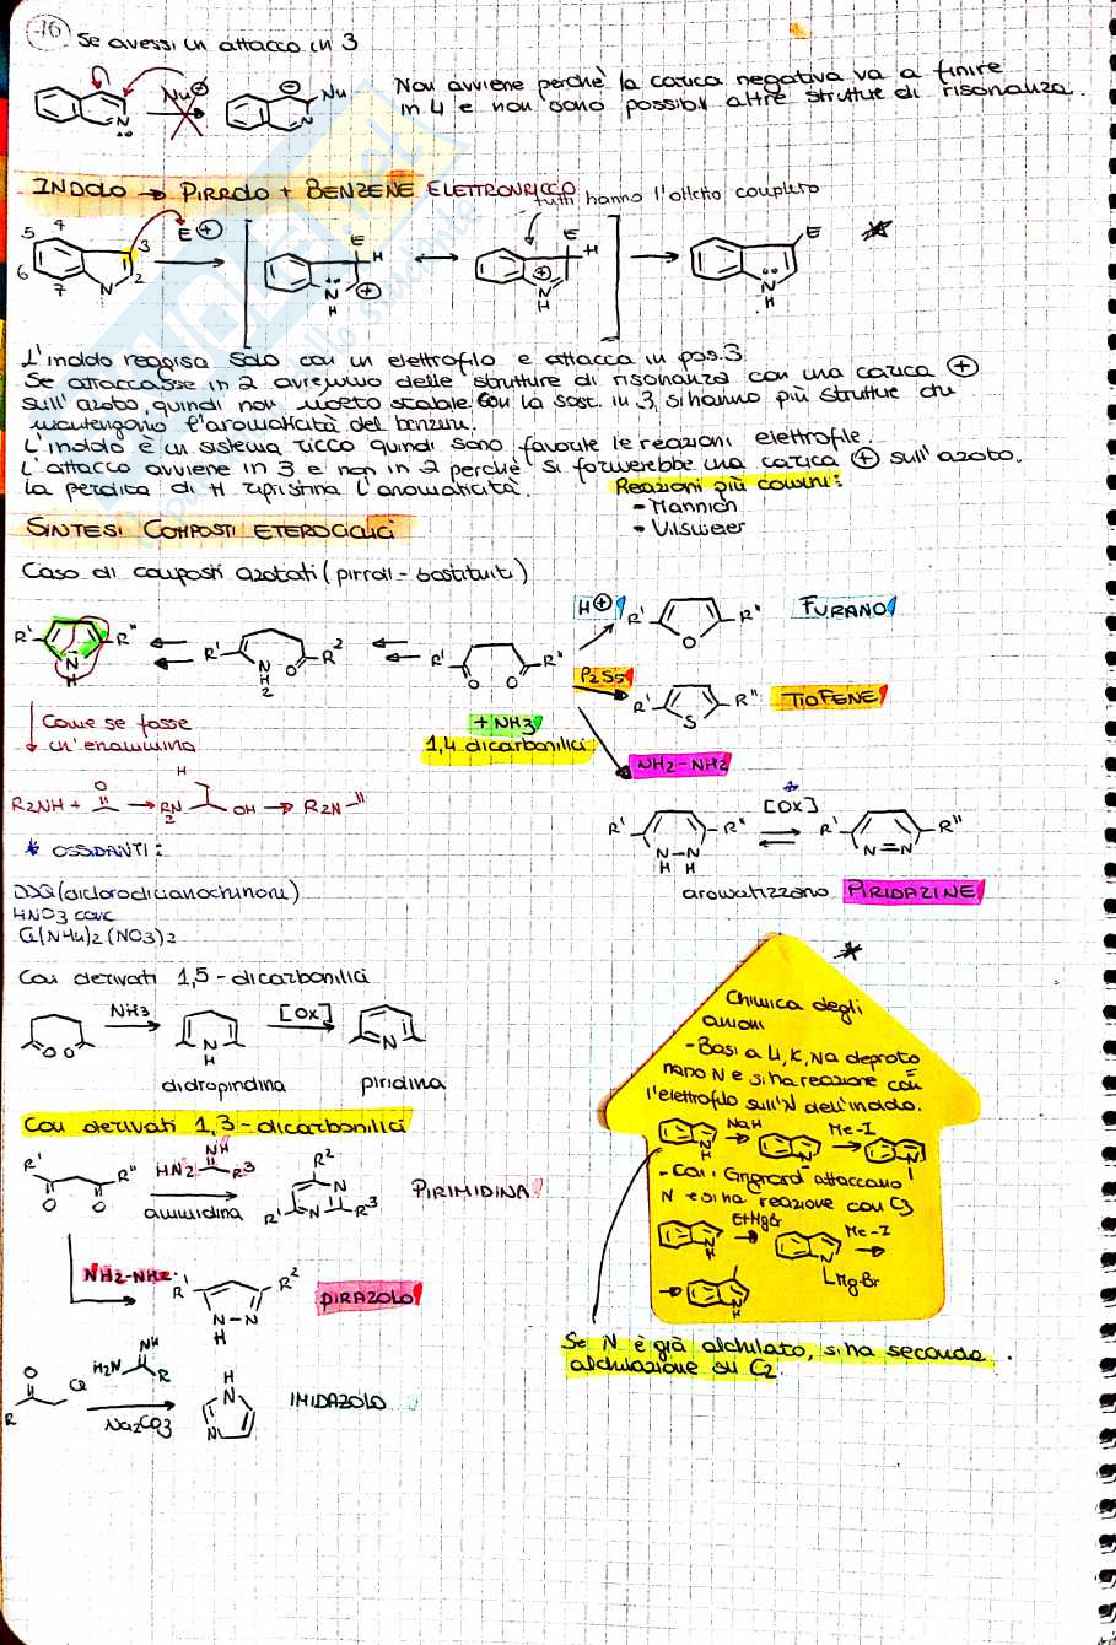 16
Se avessi un attacco in 3
Nu⊖
Nu
Non avviene perchè la carica negativa va a finire
in 4 e non sono possibili altre strutture di risonanza.
INDOLO → PIRROLO + BENZENE ELETTRONRICCO
tutti hanno l'ottetto completo
5 4 3 6 7 2 N E⊕
E H N H ⊕
E H ⊕ N H
E N H
L'indolo reagisce solo con un elettrofilo e attacca in pos.3
Se attaccasse in 2 avremmo delle strutture di risonanza con una carica ⊕
sull'azoto, quindi non molto stabile. Con la sost. in 3, si hanno più strutture che
mantengono l'aromaticità del benzene.
L'indolo è un sistema ricco quindi sono favorite le reazioni elettrofile.
L'attacco avviene in 3 e non in 2 perchè si formerebbe una carica ⊕ sull'azoto.
La perdita di H ripristina l'aromaticità.
Reazioni più comuni:
- Mannich
- Vilsmeier
SINTESI COMPOSTI ETEROCICLICI
Caso di composti azotati (pirroli-sostituiti)
R' N H R''
R' NH2 O R2
R' O O R''
H⊕ R' O R'' FURANO
P2S5 R' S R'' TIOFENE
Come se fosse
un'enammina
+ NH3
1,4 dicarbonilici
NH2-NH2
R2NH + O → R2N H OH → R2N
R' N-N R'' H H [OX] R' N=N R''
* OSSIDANTI:
aromatizzano PIRIDAZINE
DDQ (diclorodicianochinone)
HNO3 conc
Ce(NH4)2(NO3)2
Con derivati 1,5-dicarbonilici
O O NH3 N H [OX] N
diidropiridina piridina
Con derivati 1,3-dicarbonilici
R' R'' O O HN2 NH R3 ammidina R2 N N R' R3 PIRIMIDINA
NH2-NH2 R' N-N H R2 PIRAZOLO
R O Cl H2N NH R Na2CO3 H N N IMIDAZOLO
Chimica degli
anioni
- Basi a Li, K, Na deproto
nano N e si ha reazione con
l'elettrofilo sull'N dell'indolo.
N H NaH N Me-I N
- Con Grignard attaccano
N e si ha reazione con C3
N H EtMgBr N MgBr Me-I
N H
Se N è già alchilato, si ha seconda
alchilazione su C2.